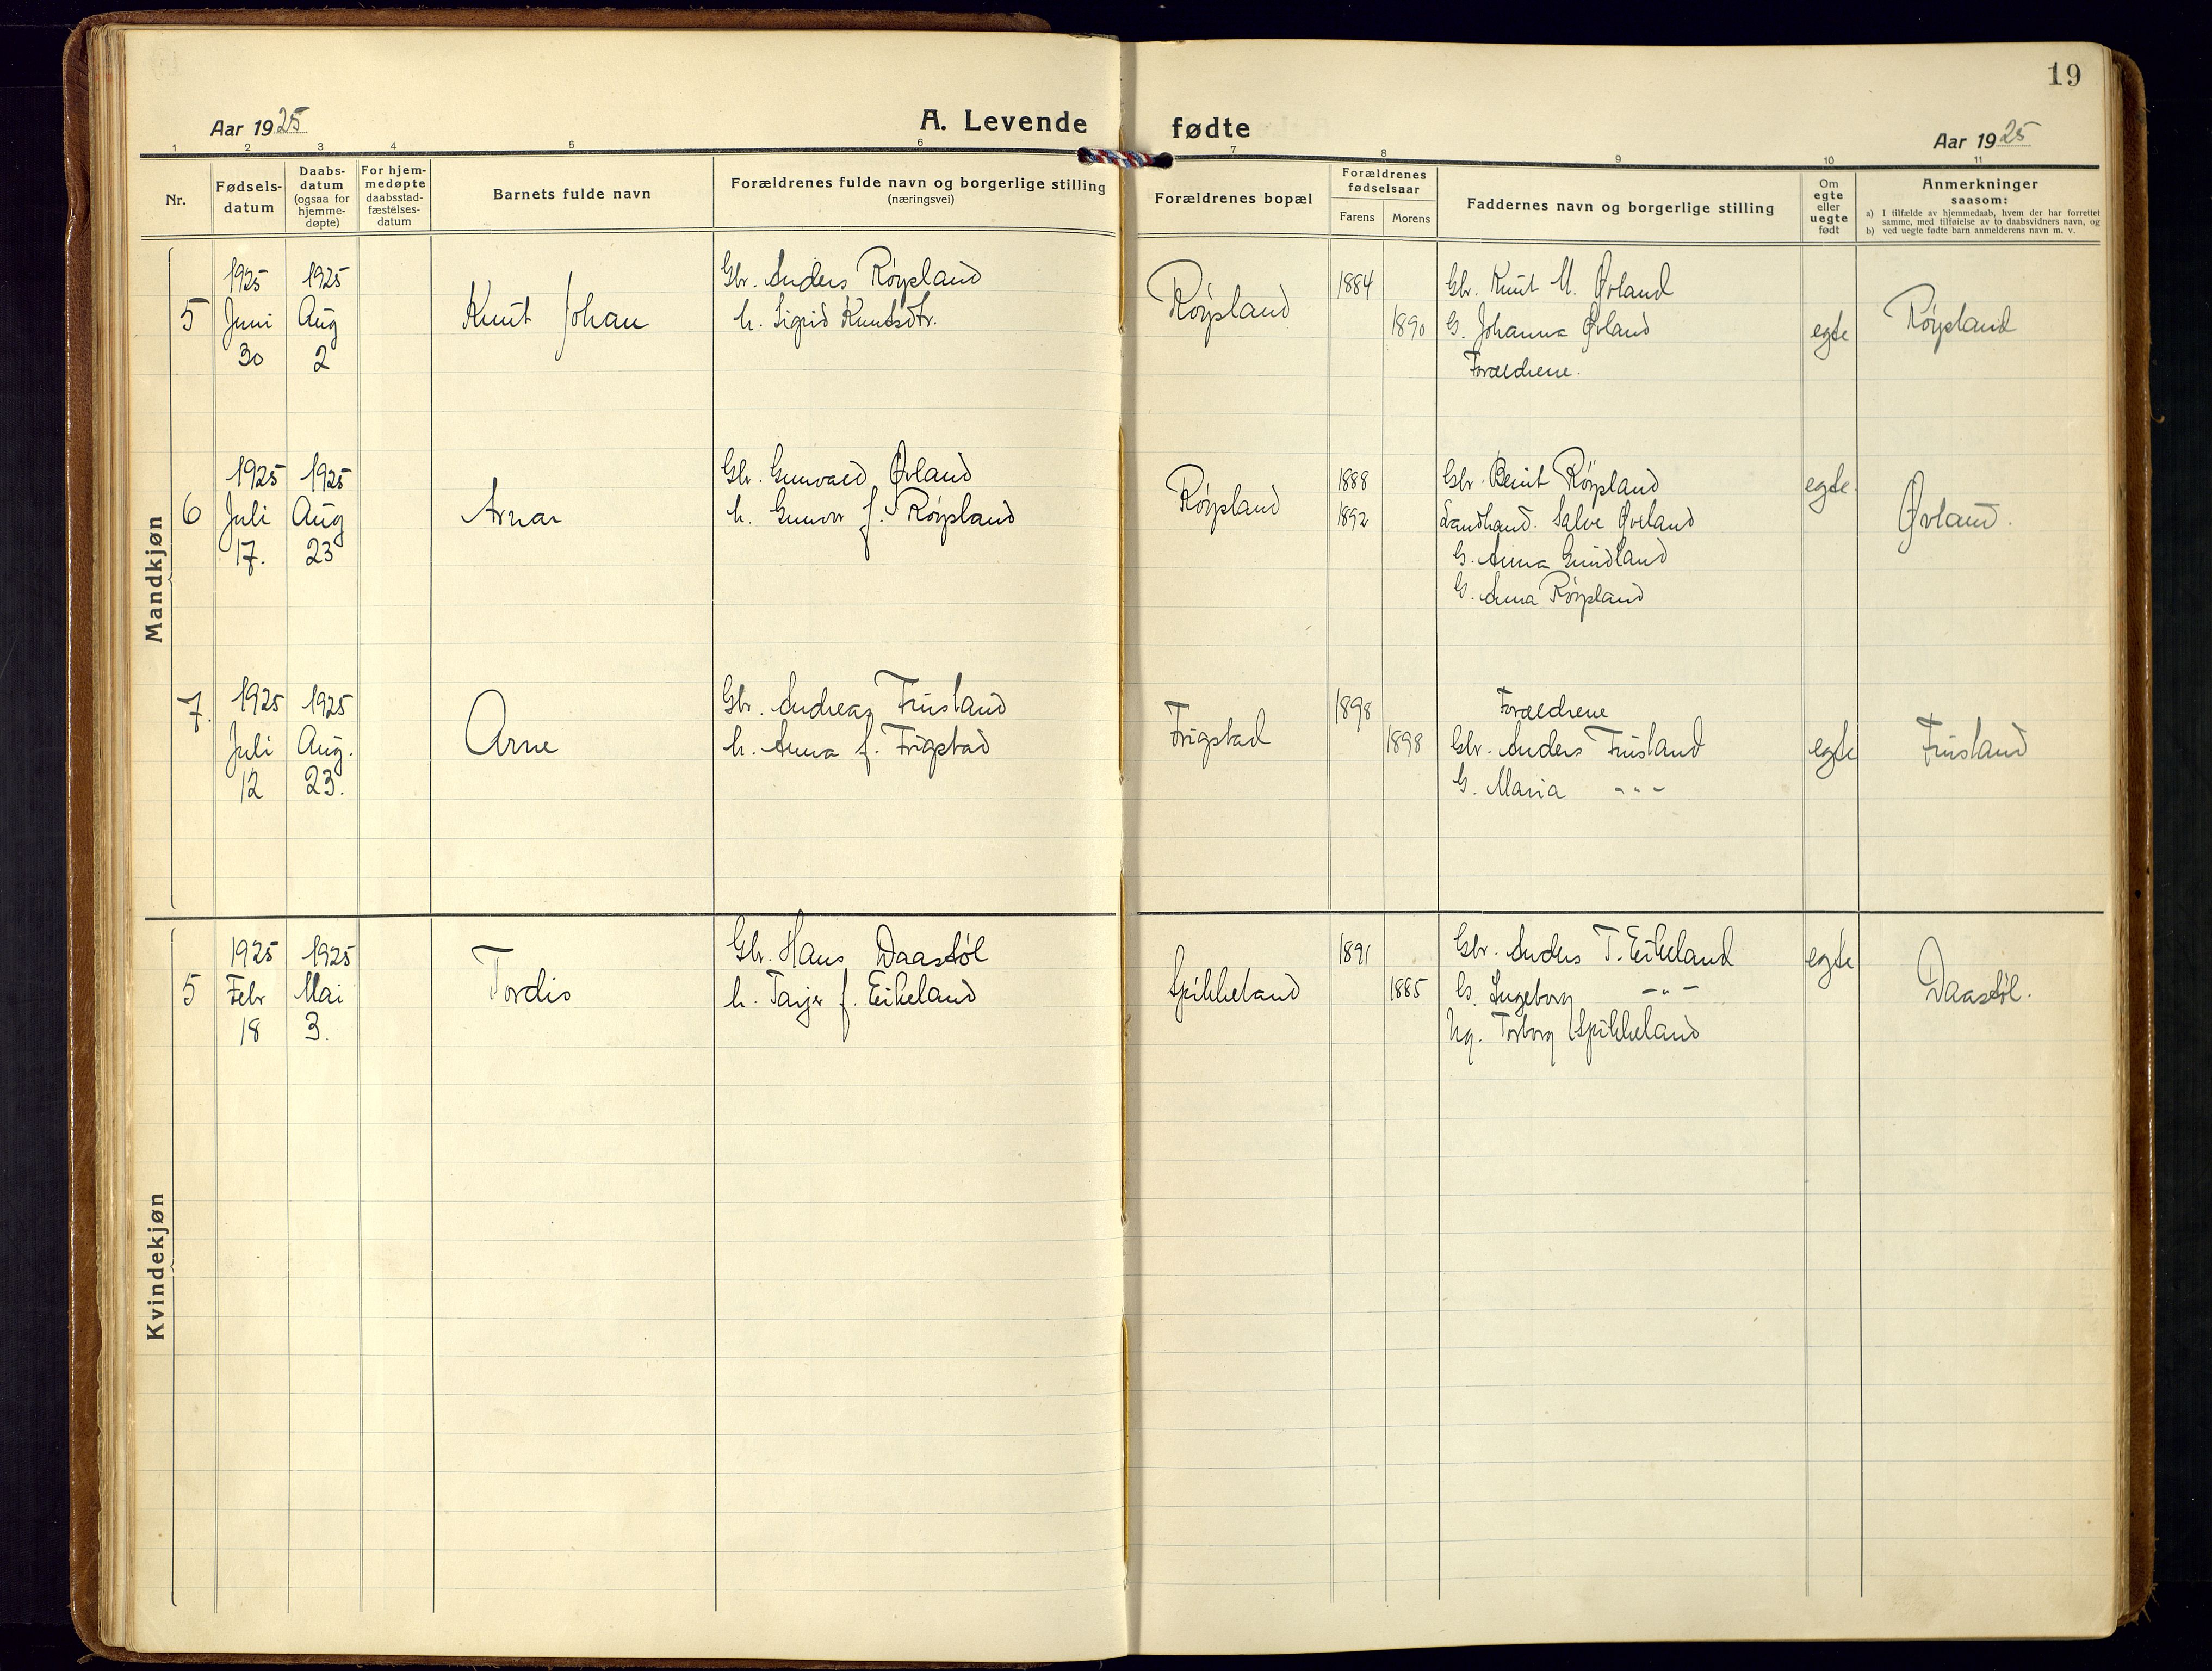 19
Aar 1925
A. Levende fødte
Aar 1925
1 2 3 4 5 6 7 8 9 10 11
Nr.
Fødsels-
datum
Daabs-
datum
(ogsaa for
hjemme-
døpte)
For hjem-
medøpte
daabsstad-
fæstelses-
datum
Barnets fulde navn
Forældrenes fulde navn og borgerlige stilling
(næringsvei)
Forældrenes bopæl
Forældrenes
fødselsaar
Farens Morens
Faddernes navn og borgerlige stilling
Om
egte
eller
uegte
født
Anmerkninger
saasom:
a) I tilfælde av hjemmedaab, hvem der har forrettet
samme, med tilføielse av to daabsvidners navn, og
b) ved uegte fødte barn anmelderens navn m. v.
Mandkjøn
5
1925
Juni
30
1925
Aug
2
Knut Johan
Gbr. Anders Røysland
h. Sigrid Knutsdtr.
Røysland
1884
1890
Gbr. Knut M. Øvland
G. Johanna Øvland
Forældrene.
egte
Røysland
6
1925
Juli
17.
1925
Aug
23
Arnar
Gbr. Gunvald Øvland
h. Gunvor f. Røysland
Røysland
1888
1892
Gbr. Berint Røysland
Landhand. Salve Øvland
G. Anna Grindland
G. Anna Røysland
egte.
Øvland.
7.
1925
Juli
12
1925
Aug.
23.
Arne
Gbr. Andreas Finsland
h. Anna f. Frigstad
Frigstad
1898
1898
Forældrene
Gbr. Anders Finsland
G. Maria - " -
egte
Finsland
Kvindekjøn
5
1925
Febr
18
1925
Mai
3.
Tordis
Gbr. Hans Daastøl
h. Tarjer f. Eikeland
Spikkeland
1891
1885
Gbr. Anders T. Eikeland
G. Ingeborg - " -
Ug. Torborg Spikkeland
egte
Daastøl.